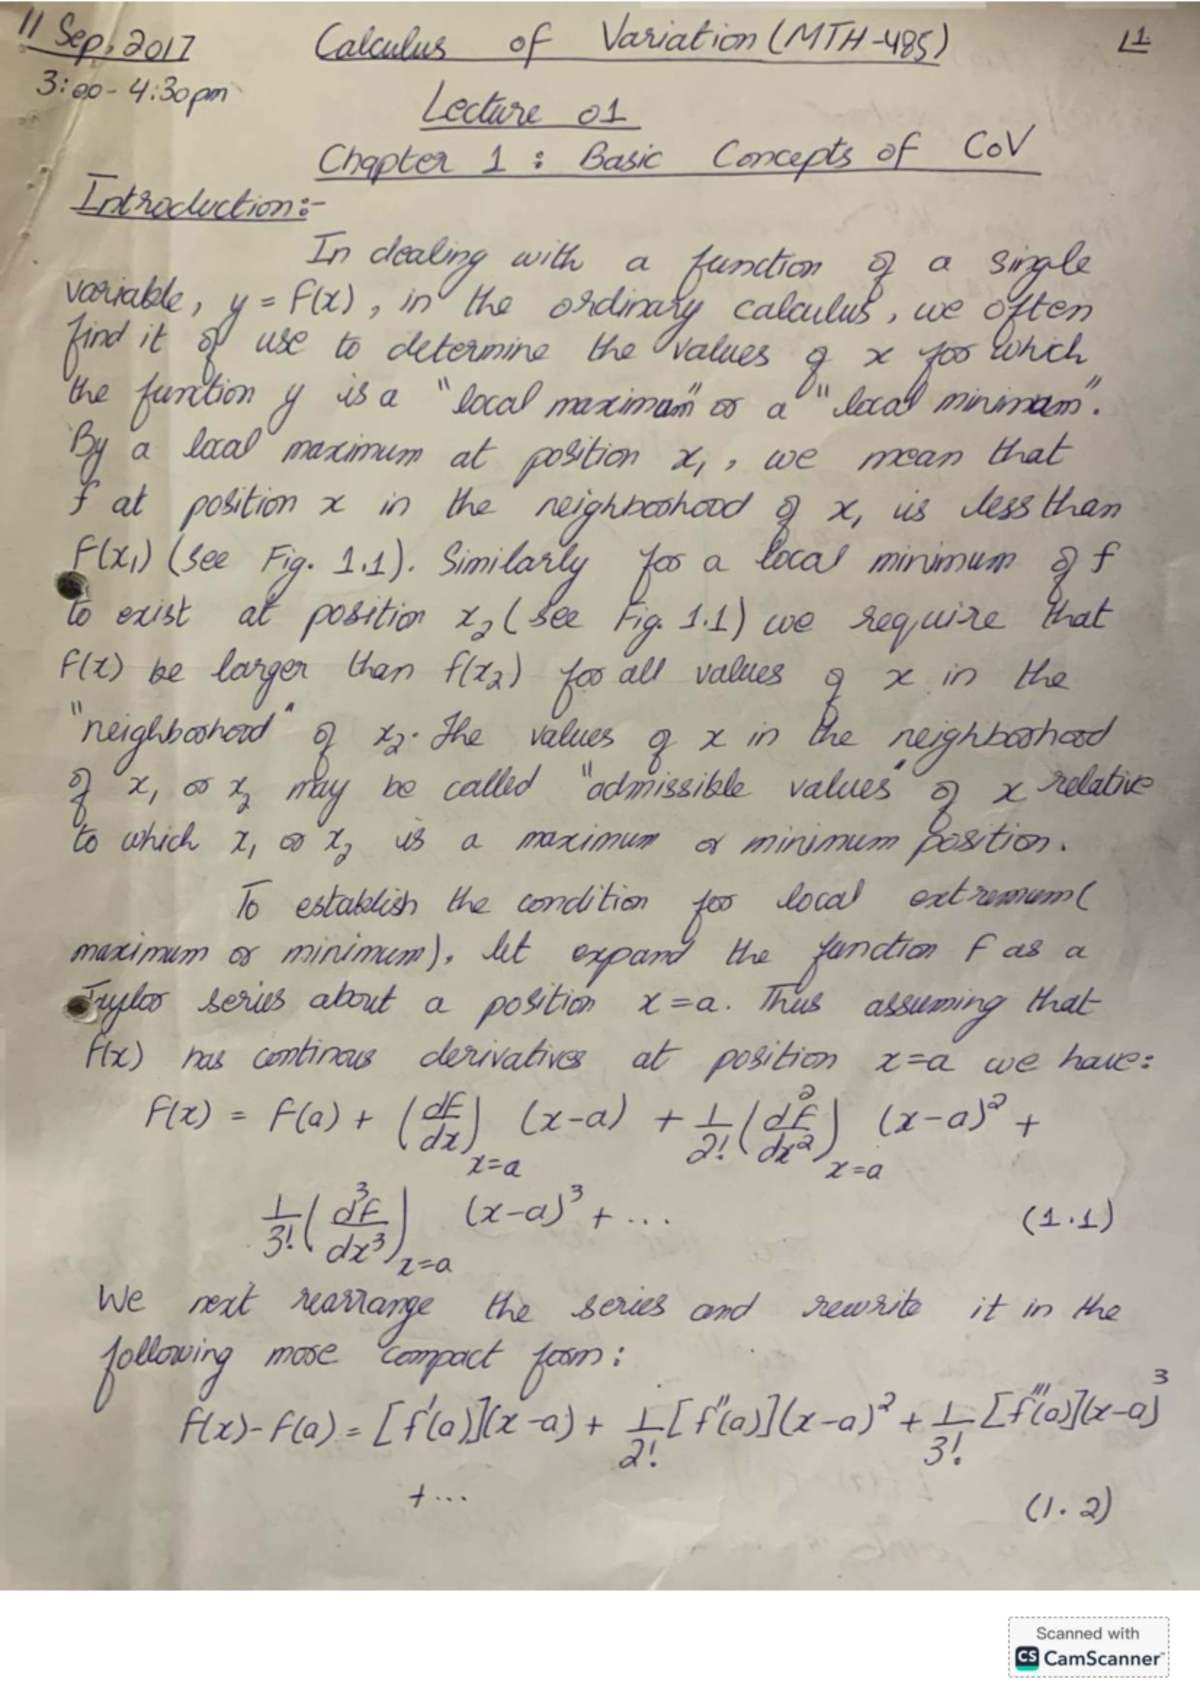 11 Sep, 2017 Calculus of Variation (MTH-485) L1
3:00-4:30pm
Lecture 01
Chapter 1 : Basic Concepts of CoV
Introduction:-
In dealing with a function of a single
variable, y = f(x), in the ordinary calculus, we often
find it of use to determine the values of x for which
the function y is a "local maximum" or a "local minimum".
By a local maximum at position x₁, we mean that
f at position x in the neighborhood of x₁ is less than
F(x₁) (see Fig. 1.1). Similarly for a local minimum of f
to exist at position x₂ (see Fig. 1.1) we require that
f(x) be larger than f(x₂) for all values of x in the
"neighborhood" of x₂. The values of x in the neighborhood
of x₁ or x₂ may be called "admissible values" of x relative
to which x₁ or x₂ is a maximum or minimum position.
To establish the condition for local extremum(
maximum or minimum), let expand the function f as a
Taylor series about a position x=a. Thus assuming that
f(x) has continous derivatives at position x=a we have:
F(x) = F(a) + (dF/dx)ₓ₌ₐ (x-a) + 1/2! (d²F/dx²)ₓ₌ₐ (x-a)² +
1/3! (d³F/dx³)ₓ₌ₐ (x-a)³ + ... (1.1)
We next rearrange the series and rewrite it in the
following more compact form:
f(x)-f(a) = [f'(a)](x-a) + 1/2! [f''(a)](x-a)² + 1/3! [f'''(a)](x-a)³
+ ... (1.2)
Scanned with
CS CamScanner